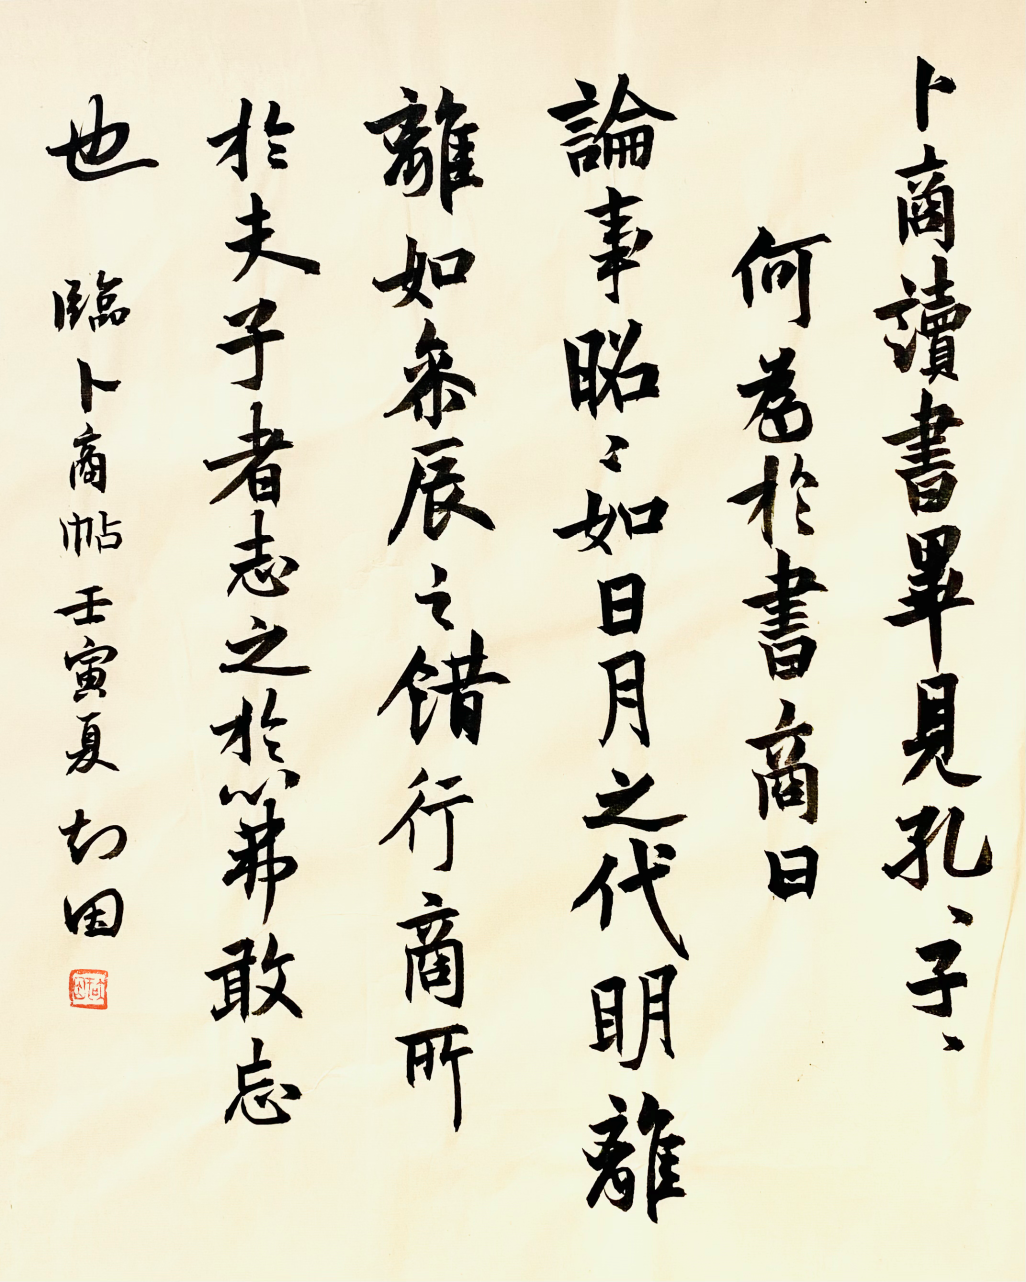 卜商讀書畢見孔〻子〻
何為於書商曰
論事昭〻如日月之代明離
離如參辰之錯行商所
於夫子者志之於心弗敢忘
也 臨卜商帖壬寅夏